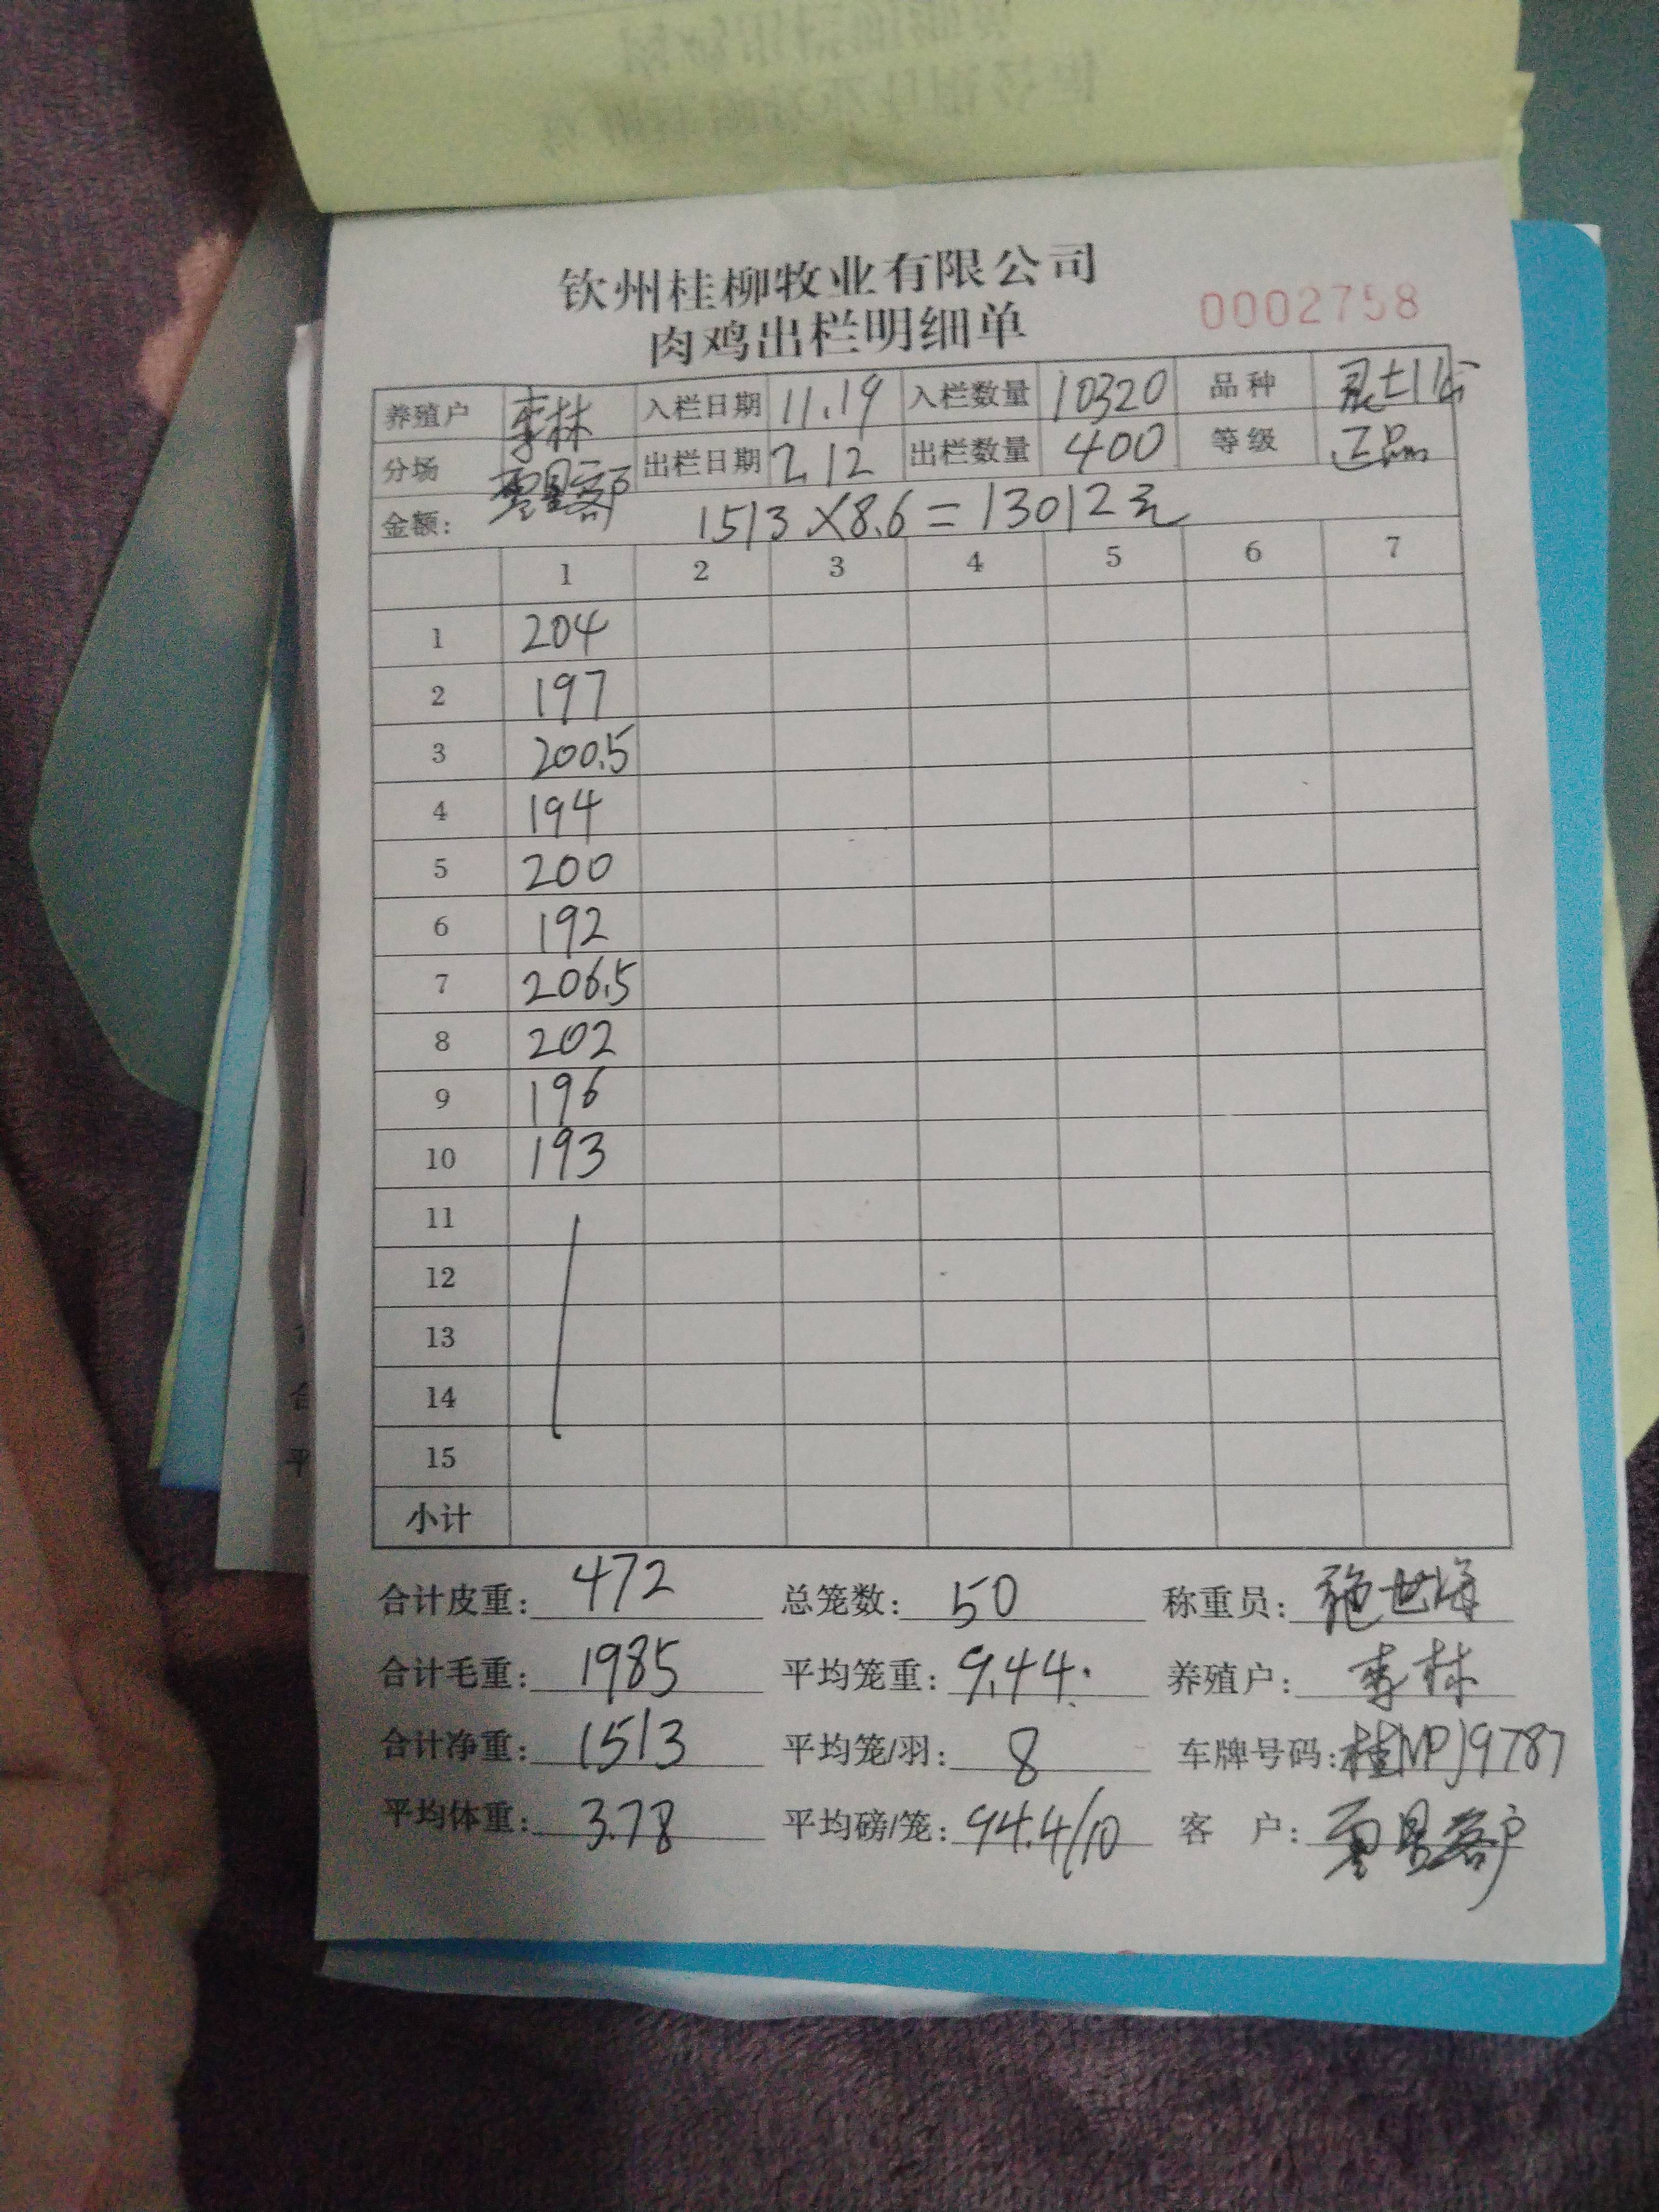 钦州桂柳牧业有限公司
肉鸡出栏明细单
0002758
养殖户 李林 入栏日期 11.19 入栏数量 10320 品种 灵土
分场 出栏日期 2.12 出栏数量 400 等级 正品
金额: 1513×8.6=13012元
1 2 3 4 5 6 7
1 204
2 197
3 200.5
4 194
5 200
6 192
7 206.5
8 202
9 196
10 193
11
12
13
14
15
小计
合计皮重: 472 总笼数: 50 称重员: 施世海
合计毛重: 1985 平均笼重: 9.44. 养殖户: 李林
合计净重: 1513 平均笼/羽: 8 车牌号码: 桂NPJ9787
平均体重: 3.78 平均磅/笼: 94.4/10 客户: